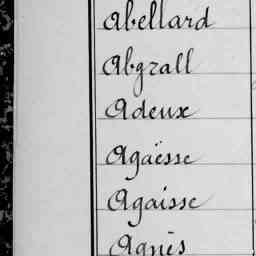 Abellard
Abgrall
Adeux
Agaësse
Agaisse
Agnès